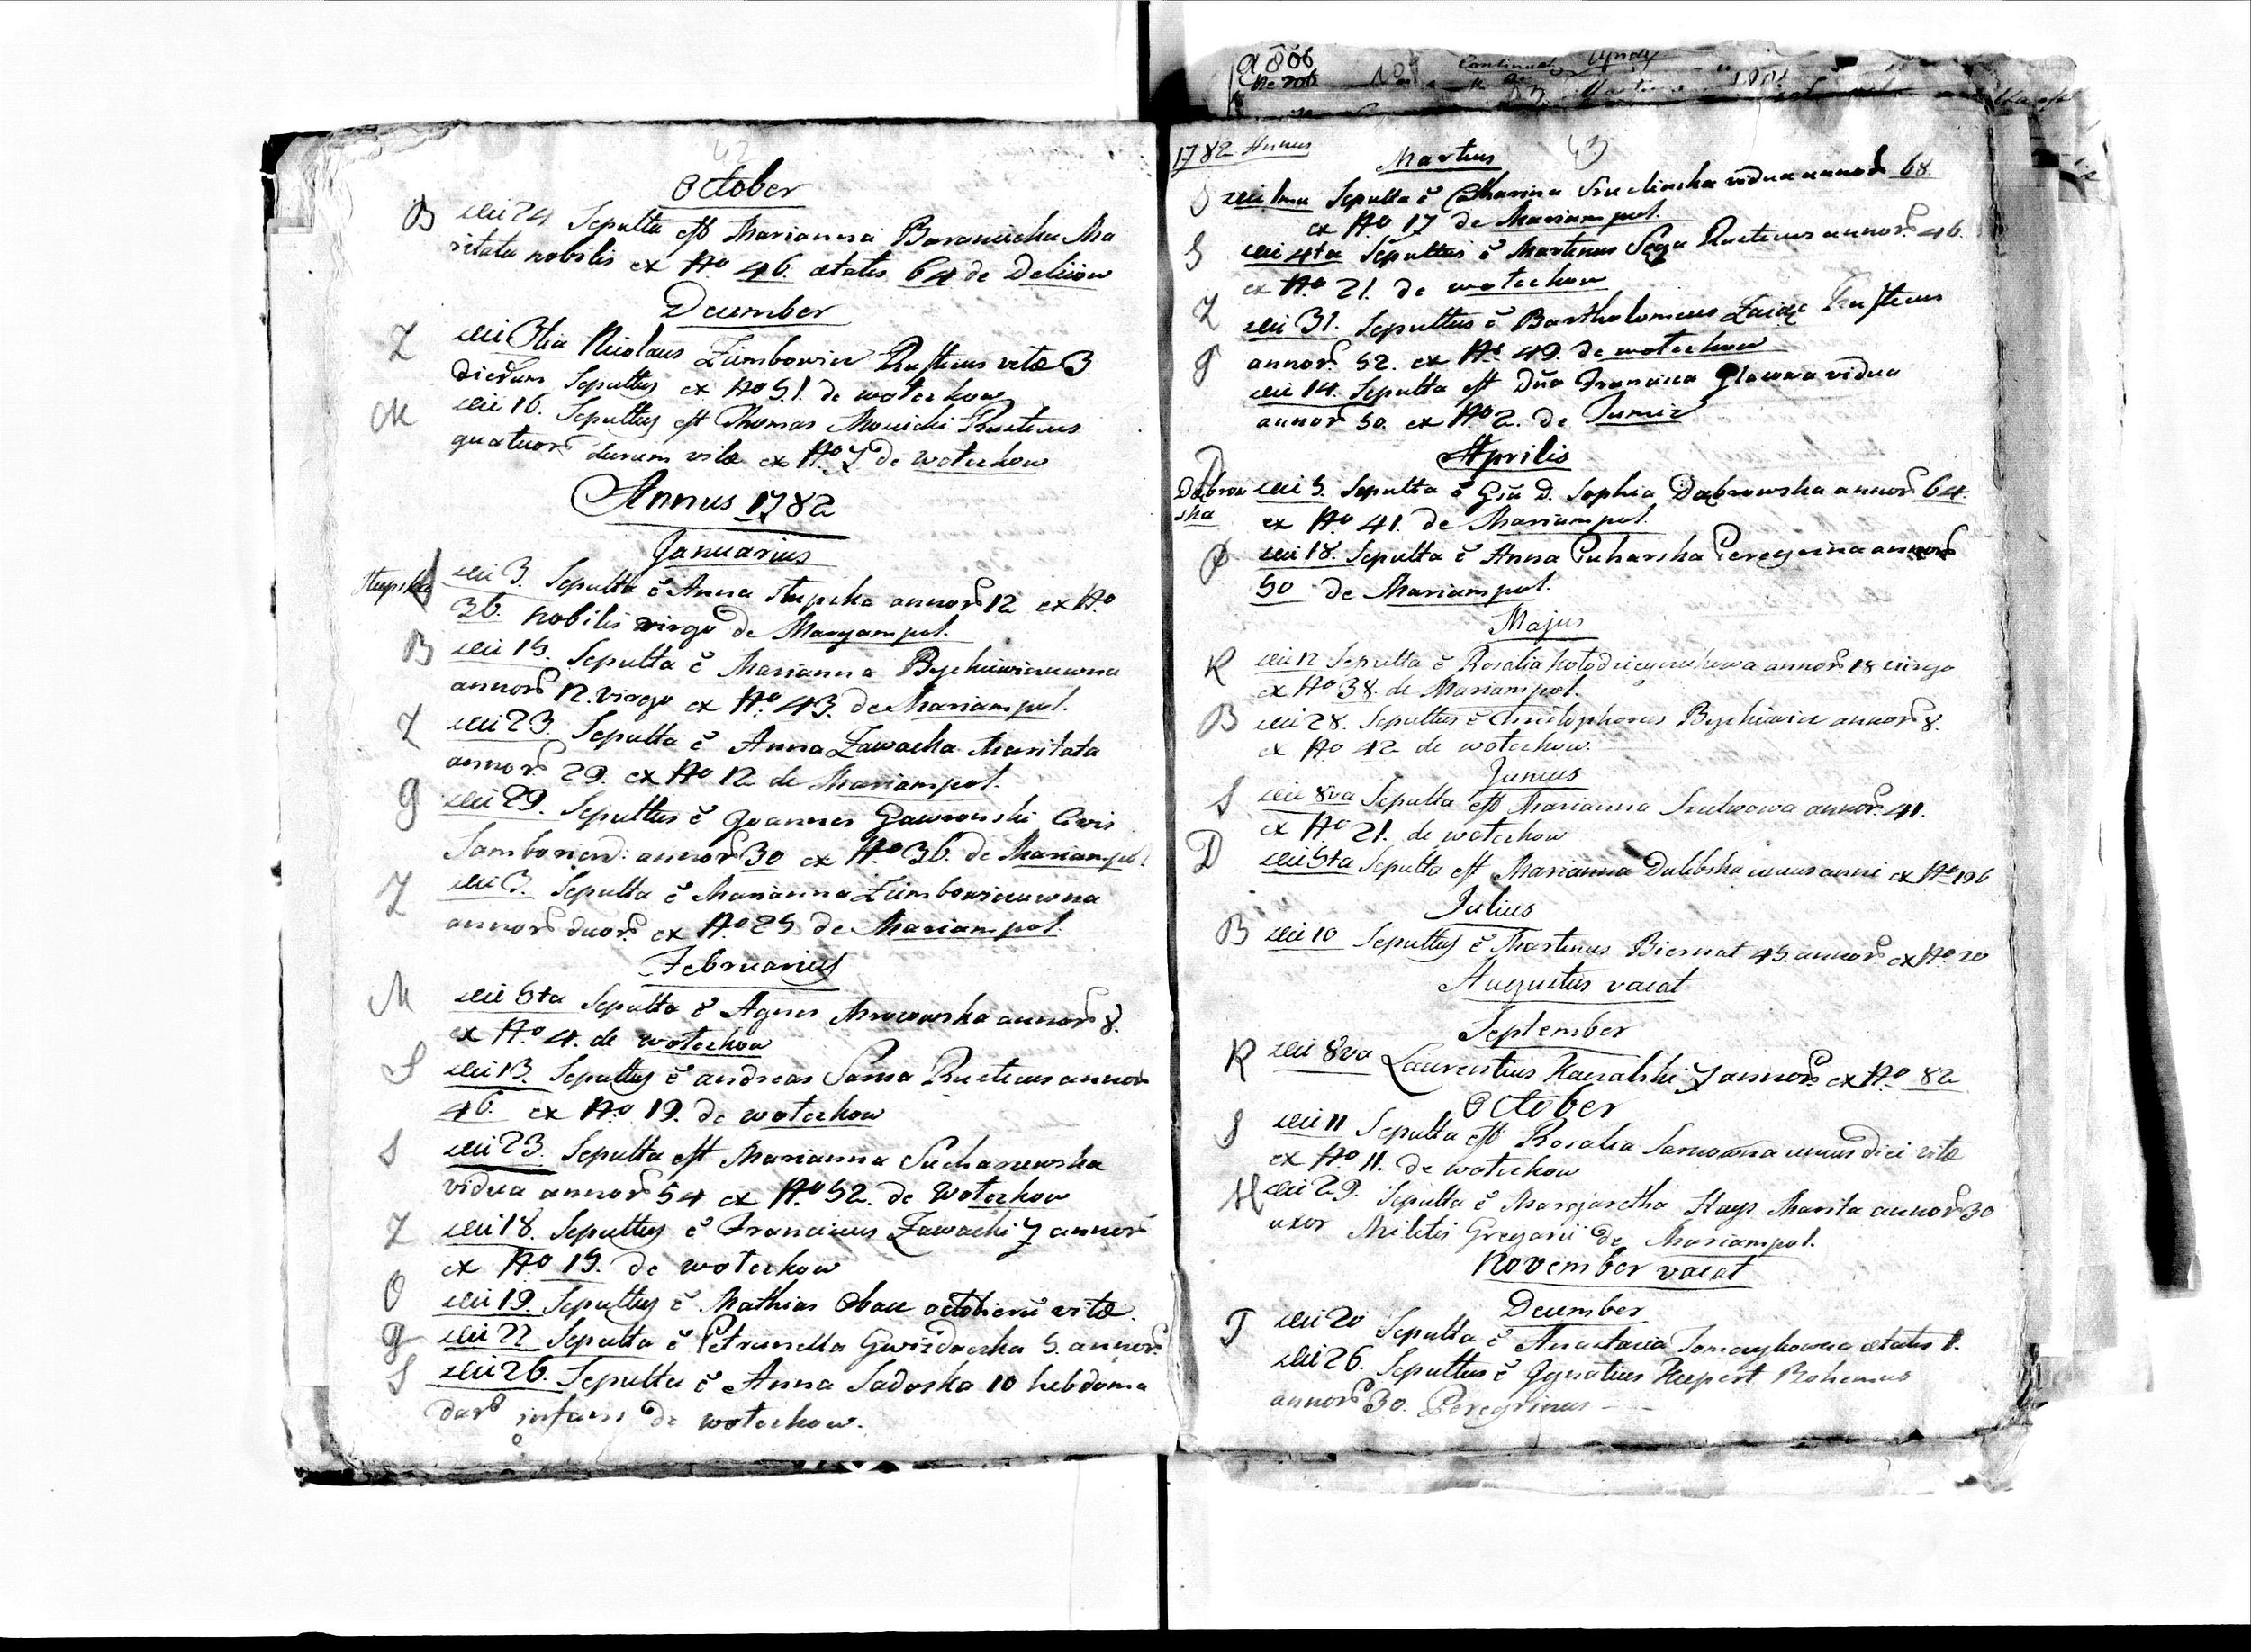 42
October
B Die 24 Sepulta est Marianna Baraniecka Ma
ritata nobilis ex No 46. ætatis 64 de Deliiow
December
Z Die 3tia Nicolaus Zimbowicz Rusticus vitæ 3
dierum Sepultus ex No 51. de wotochow
M Die 16. Sepultus est Thomas Mowicki Rusticus
quatuor dierum vitæ ex No 7 de wotochow
Annus 1782
Januarius
Stupska Die 3. Sepulta ē Anna Stupska annor 12 ex No
36. nobilis virgo de Maryampol.
B Die 15. Sepulta ē Marianna Bychiewiczuwna
annor 12. virgo ex No 43. de Mariampol.
Z Die 23. Sepulta ē Anna Zawacka Maritata
annor. 29. ex No 12 de Mariampol.
G Die 29. Sepultus ē Joannes Gawronski Civis
Samborien: annor 30 ex No 36. de Mariampol
Z Die 3. Sepulta ē Marianna Zimbowiczuwna
annor duor. ex No 25 de Mariampol.
Februarius
M Die 5ta Sepulta ē Agnes Mrozowska annor 8.
ex No 4. de wotochow
S Die 13. Sepultus ē andreas Sawa Rusticus annor
46. ex No 19. de wotochow
S Die 23. Sepulta est Marianna Suchanewska
vidua annor 54 ex No 52. de Wotochow
Z Die 18. Sepultus ē Franciscus Zawacki 7 annor
ex No 15. de wotochow
O Die 19. Sepultus ē Mathias Obac octo dierū vitæ.
G Die 22 Sepulta ē Petrunella Gwizdaczka 5. annor.
S Die 26. Sepulta ē Anna Sadoska 10 hebdoma
dar infans de wotochow.
1782 Annus
43
Martius
S Die 1ma Sepulta ē Catharina vidua annor 68
ex No 17 de Mariampol.
S Die 4ta Sepultus ē Martinus Sega Rusticus annor. 46.
ex No 21. de wotochow
Z Die 31. Sepultus ē Bartholomeus Zaiąc Rusticus
annor. 52. ex No 49. de wotochow
G Die 14. Sepulta est Dña Francisca Glowna vidua
annor 50. ex No 2. de
Aprilis
Dąbrow
ska
Die 5. Sepulta ē Gsa D. Sophia Dąbrowska annor 64.
ex No 41. de Mariampol.
P Die 18. Sepulta ē Anna Puharska Peregrina annor
50 de Mariampol.
Majus
K Die 12 Sepulta ē Rosalia annor. 18 virgo
ex No 38. de Mariampol.
B Die 28. Sepultus ē Christophorus Bychiwicz annor 8.
ex No 42 de wotochow.
Junius
S Die 8va Sepulta est Marianna annor. 41.
ex No 21. de wotochow
D Die 5ta Sepulta est Marianna Dulibska unius anni ex No 106
Julius
B Die 10 Sepultus ē Martinus Biernat 45. annor ex No 20
Augustus vacat
September
K Die 8va Laurentius Kowalski 7 annor ex No 82
October
S Die 11 Sepulta est Rosalia Sawowna unius diei vitæ
ex No 11. de wotochow
H Die 29. Sepulta ē Margaretha Marita annor 30
uxor Militis Gregarii de Mariampol.
November vacat
December
T Die 20 Sepulta ē Anastasia Tomczykowna ætatis 1.
Die 26. Sepultus ē Ignatius Bohemus
annor 30. Peregrinus